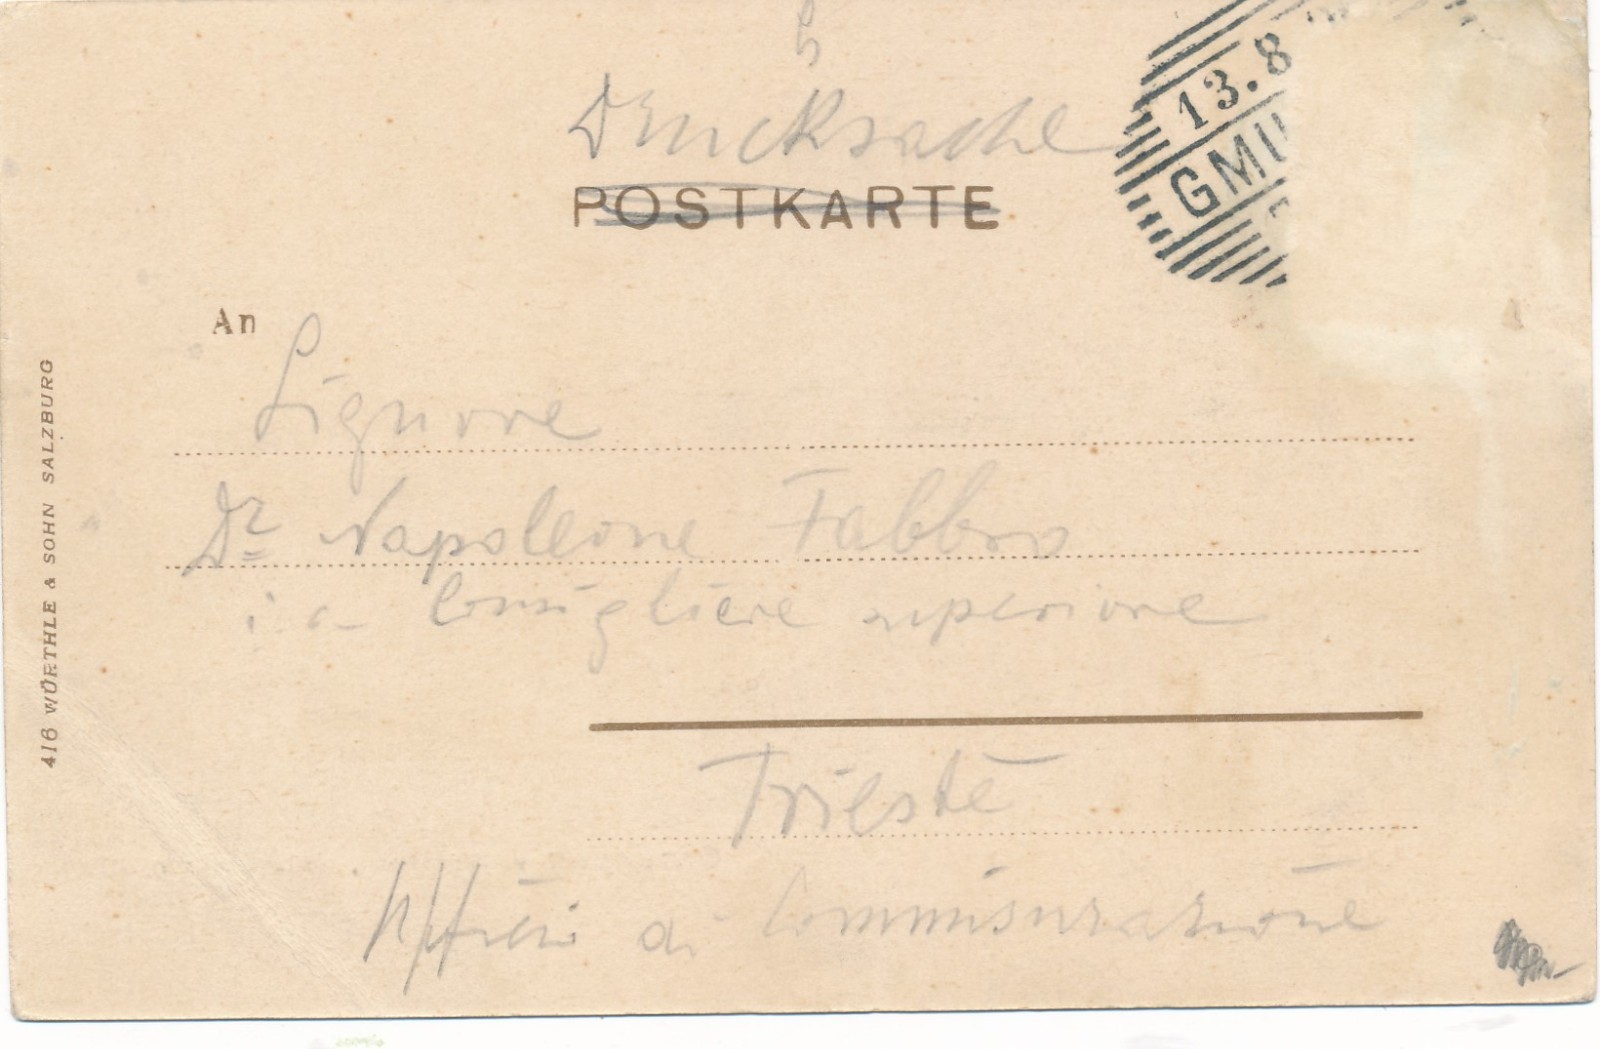 Drucksache
POSTKARTE
13.8
GMU
An
Signore
Dr Napoleone Fabbro
i. r. Consigliere superiore
Trieste
Ufficio di Commisurazione
416 WÜRTHLE & SOHN SALZBURG